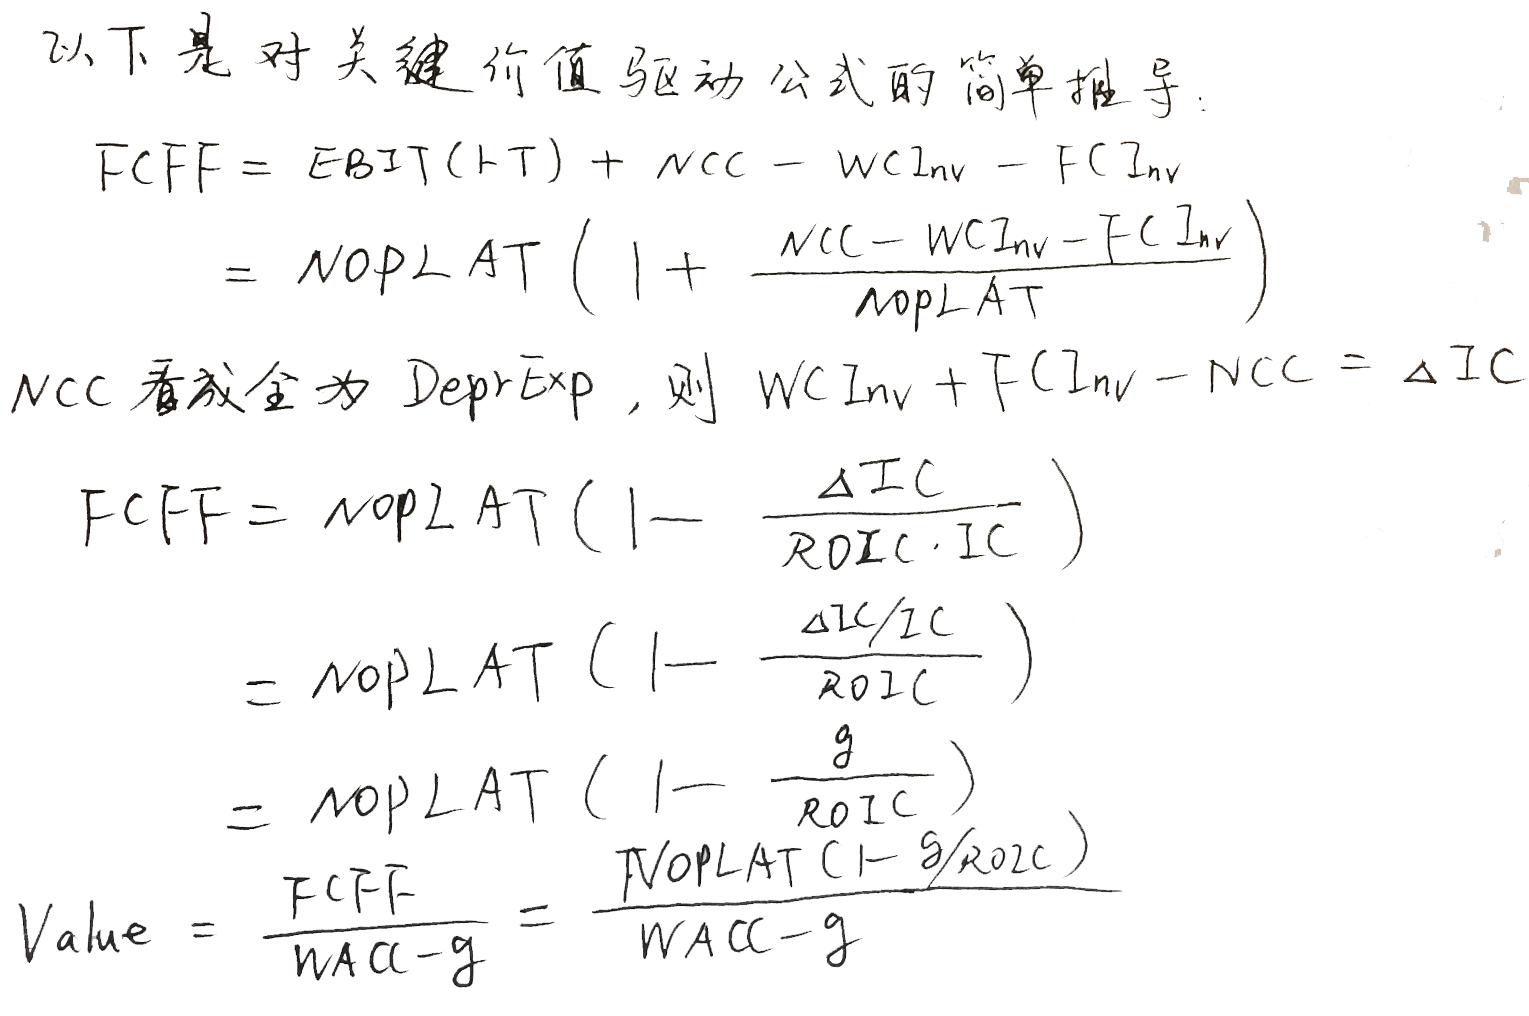 以下是对关键价值驱动公式的简单推导:
FCFF = EBIT(1-T) + NCC - WCInv - FCInv
= NOPLAT ( 1 + (NCC - WCInv - FCInv) / NOPLAT )
NCC 看成全为 DeprExp, 则 WCInv + FCInv - NCC = ΔIC
FCFF = NOPLAT ( 1 - ΔIC / (ROIC · IC) )
= NOPLAT ( 1 - (ΔIC/IC) / ROIC )
= NOPLAT ( 1 - g / ROIC )
Value = FCFF / (WACC - g) = NOPLAT (1 - g/ROIC) / (WACC - g)